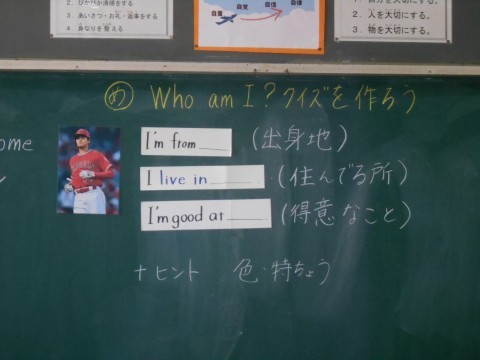 2. ぴかぴか清掃をする
3. あいさつ・お礼・返事をする
4. 身なりを整える
自覚
自信
2. 人を大切にする。
3. 物を大切にする。
め Who am I? クイズを作ろう
ome
I'm from ____ (出身地)
I live in ____ (住んでる所)
I'm good at ____ (得意なこと)
+ヒント 色・特ちょう